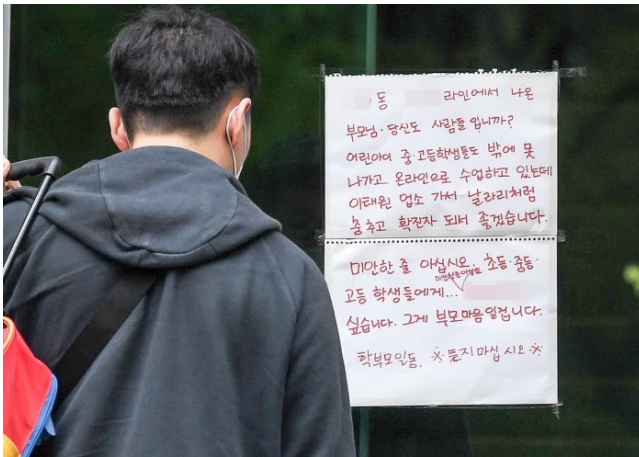 동 라인에서 나온
부모님·당신도 사람들 입니까?
어린아이 중·고등학생들도 밖에 못
나가고 온라인으로 수업하고 있는데
이태원 업소 가서 날라리처럼
춤추고 확진자 되서 좋겠습니다.
미안한 줄 아십시오. 초등·중등·
고등 학생들에게...
싶습니다. 그게 부모마음 일겁니다.
학부모일동. ※ 뜯지마십시오 ※